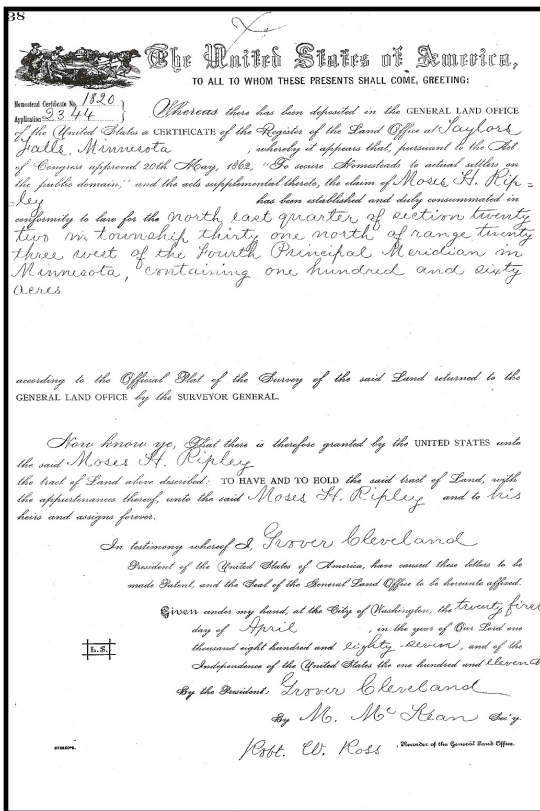 38
The United States of America,
TO ALL TO WHOM THESE PRESENTS SHALL COME, GREETING:
Homestead Certificate No. 1820
Application 2344
Whereas there has been deposited in the GENERAL LAND OFFICE
of the United States a CERTIFICATE of the Register of the Land Office at Taylors
Falls, Minnesota, whereby it appears that, pursuant to the Act
of Congress approved 20th May, 1862, "To secure Homesteads to actual settlers on
the public domain," and the acts supplemental thereto, the claim of Moses H. Rip=
=ley has been established and duly consummated in
conformity to law for the north east quarter of section twenty
two in township thirty one north of range twenty
three west of the Fourth Principal Meridian in
Minnesota, containing one hundred and sixty
acres
according to the Official Plat of the Survey of the said Land returned to the
GENERAL LAND OFFICE by the SURVEYOR GENERAL.
Now know ye, That there is therefore granted by the UNITED STATES unto
the said Moses H. Ripley
the tract of Land above described: TO HAVE AND TO HOLD the said tract of Land, with
the appurtenances thereof, unto the said Moses H. Ripley and to his
heirs and assigns forever.
In testimony whereof I, Grover Cleveland
President of the United States of America, have caused these letters to be
made Patent, and the Seal of the General Land Office to be hereunto affixed.
Given under my hand, at the City of Washington, the twenty first
day of April, in the year of Our Lord one
thousand eight hundred and eighty seven, and of the
Independence of the United States the one hundred and eleven
L.S.
By the President: Grover Cleveland
By M. McKean Sec'y.
Robt. W. Ross, Recorder of the General Land Office.